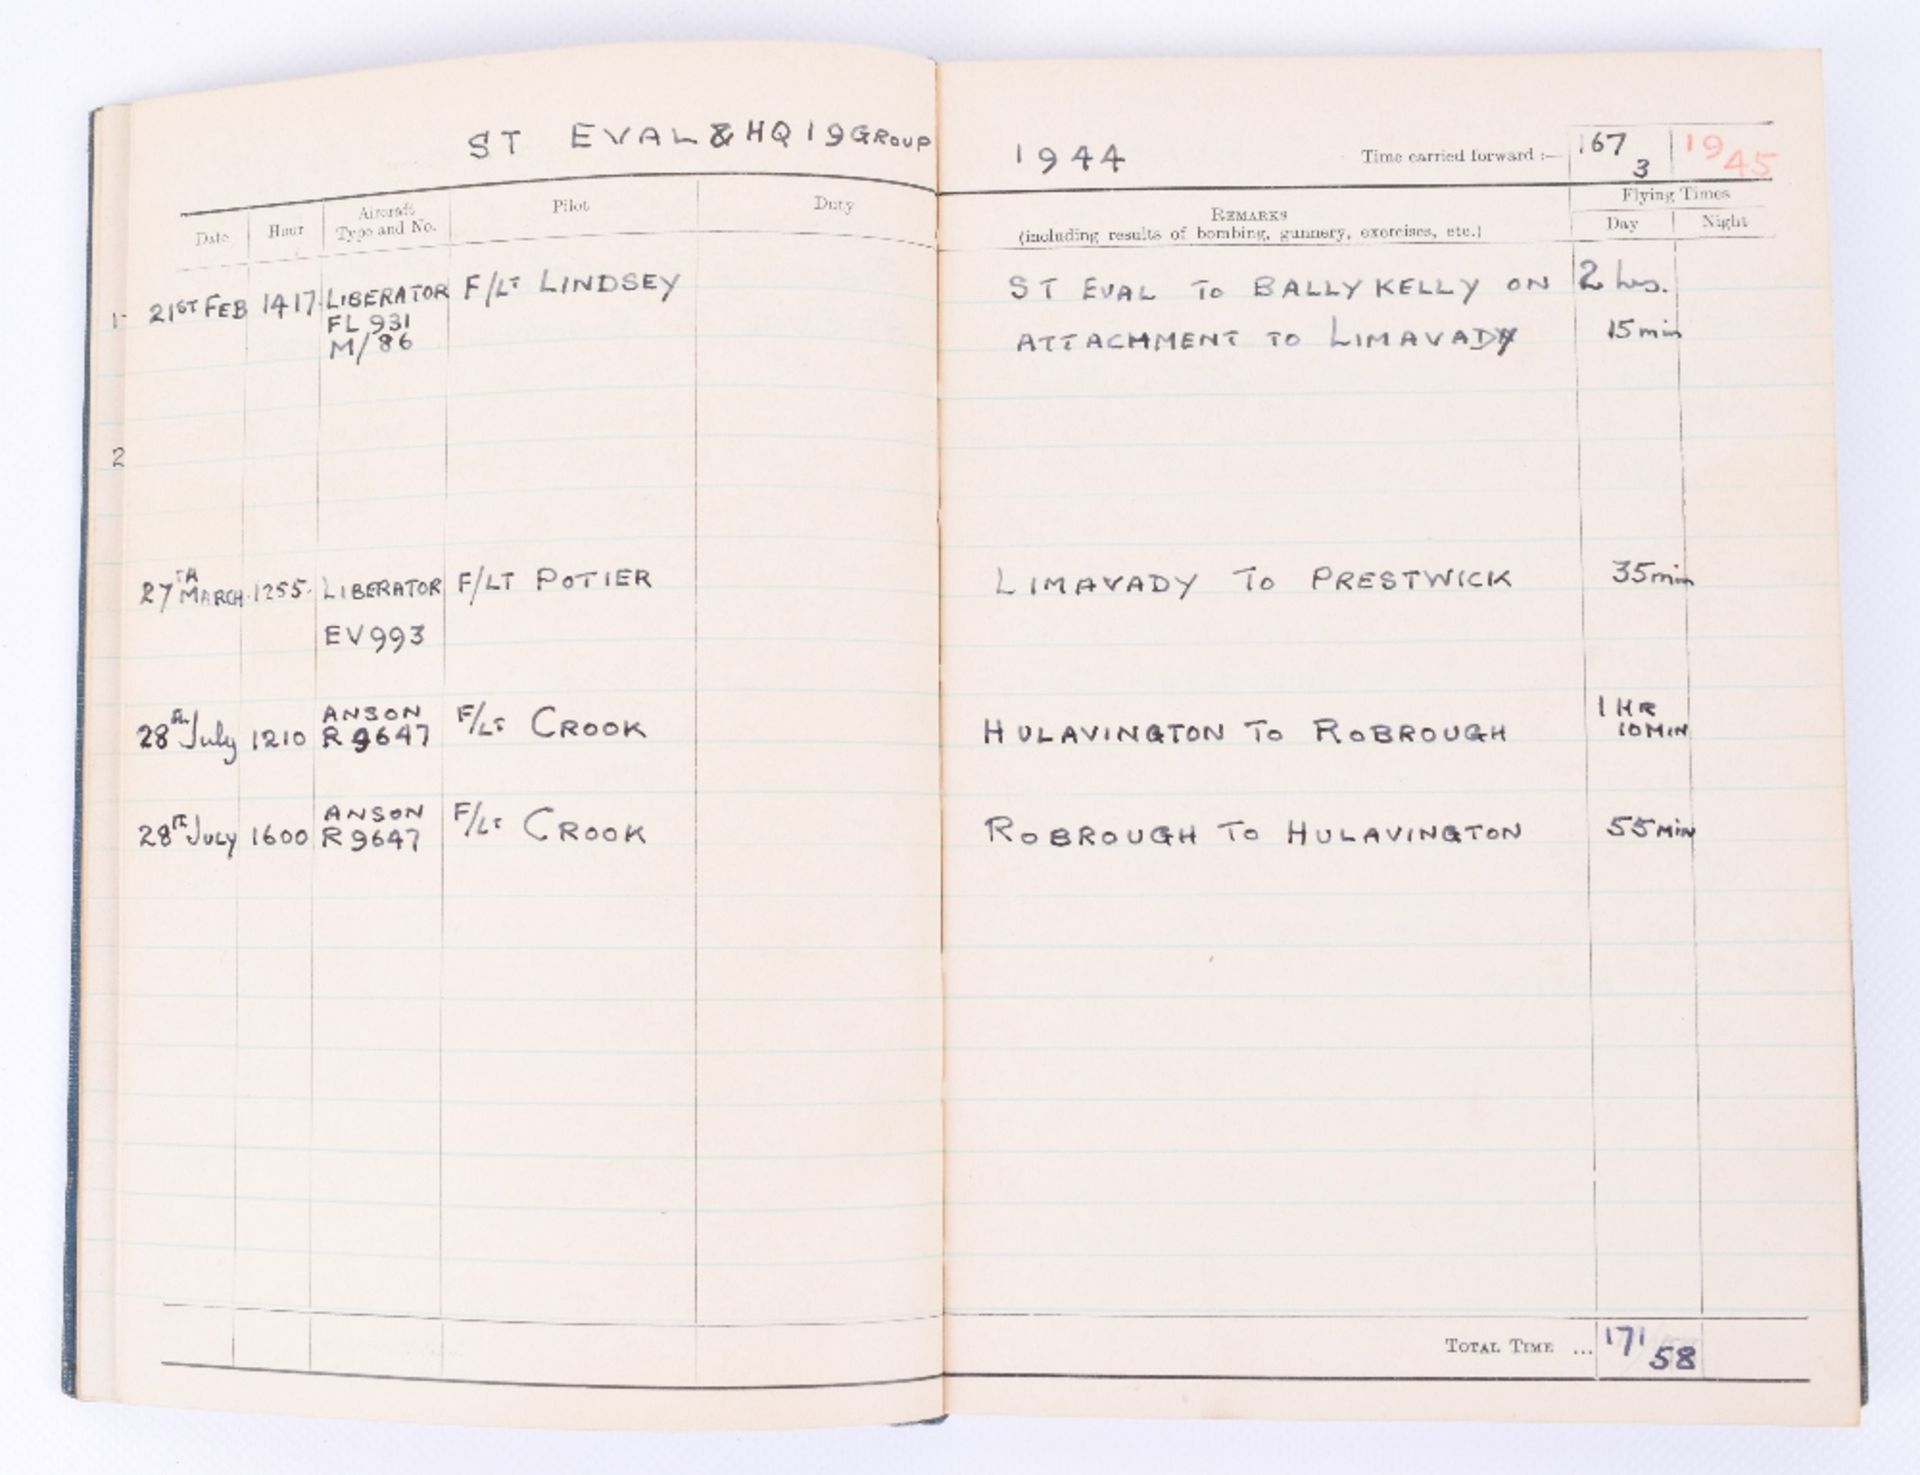 ST EVAL & HQ 19 GROUP
1944
Time carried forward :—
167 3
1945
Date
Hour
Aircraft Type and No.
Pilot
Duty
REMARKS
(including results of bombing, gunnery, exercises, etc.)
Flying Times
Day
Night
1
21ST FEB 1417 LIBERATOR F/LT LINDSEY ST EVAL TO BALLYKELLY ON 2 hrs.
FL 931 ATTACHMENT TO LIMAVADY 15 min
M/86
2
27TH MARCH 1255 LIBERATOR F/LT POTIER LIMAVADY TO PRESTWICK 35 min
EV993
28th July 1210 ANSON F/LT CROOK HULAVINGTON TO ROBROUGH 1 HR
R9647 10 MIN
28th JULY 1600 ANSON F/LT CROOK ROBROUGH TO HULAVINGTON 55 MIN
R9647
TOTAL TIME ... 171 58